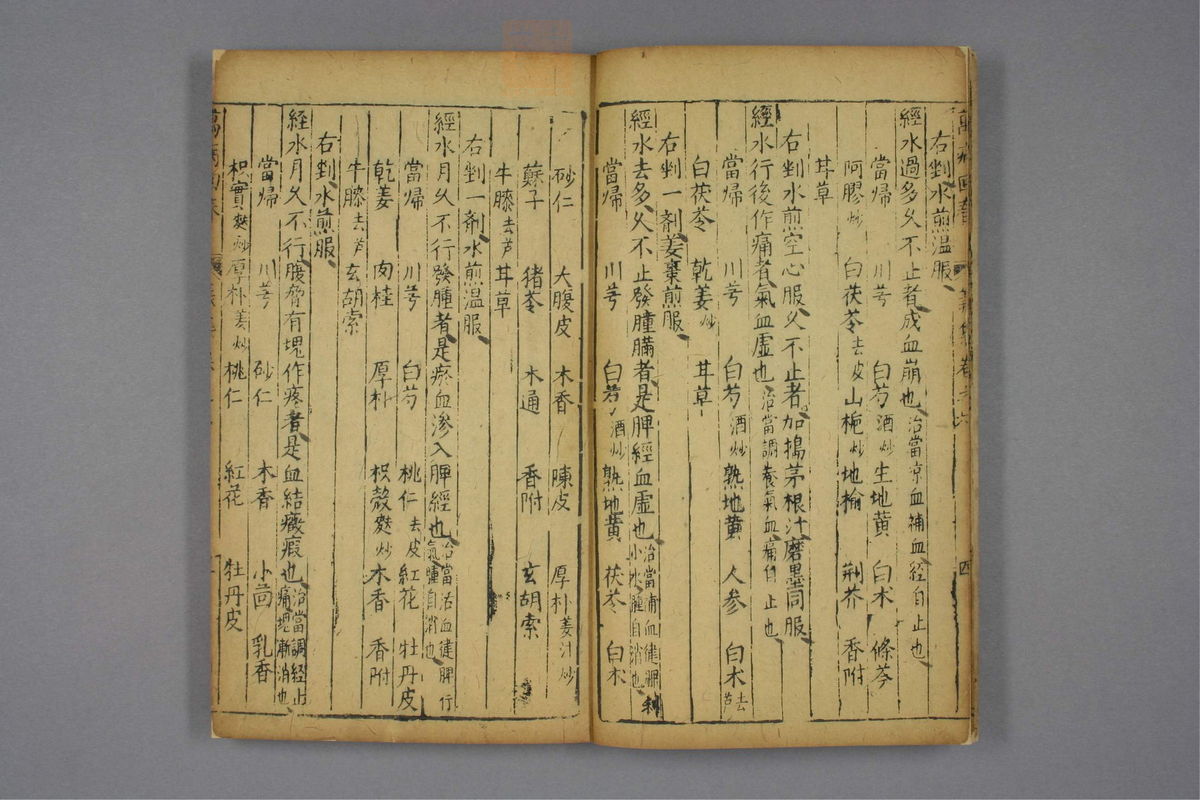 右剉水煎溫服
經水過多久不止者成血崩也治當涼血補血經自止也
當歸 川芎 白芍酒炒 生地黃 白朮 條芩
阿膠炒 白茯苓去皮 山梔炒 地榆 荆芥 香附
甘草
右剉水煎空心服久不止者加搗茅根汁磨墨同服
經水行後作痛者氣血虛也治當調養氣血痛自止也
當歸 川芎 白芍酒炒 熟地黃 人参 白朮去芦
白茯苓 乾姜炒 甘草
右剉一剤姜棗煎服
經水去多久不止發腫滿者是脾經血虛也治當補血健脾利小水腫自消也
當歸 川芎 白芍酒炒 熟地黃 茯苓 白朮
砂仁 大腹皮 木香 陳皮 厚朴姜汁炒
蘇子 猪苓 木通 香附 玄胡索
牛膝去芦 甘草
右剉一剤水煎溫服
經水月久不行發腫者是瘀血滲入脾經也治當活血健脾行氣腫自消也
當歸 川芎 白芍 桃仁去皮 紅花 牡丹皮
乾姜 肉桂 厚朴 枳殼麩炒 木香 香附
牛膝去芦 玄胡索
右剉水煎服
經水月久不行腹脅有塊作疼者是血結癥瘕也治當調經止痛塊漸消也
當歸 川芎 砂仁 木香 小茴 乳香
枳實麩炒 厚朴姜炒 桃仁 紅花 牡丹皮